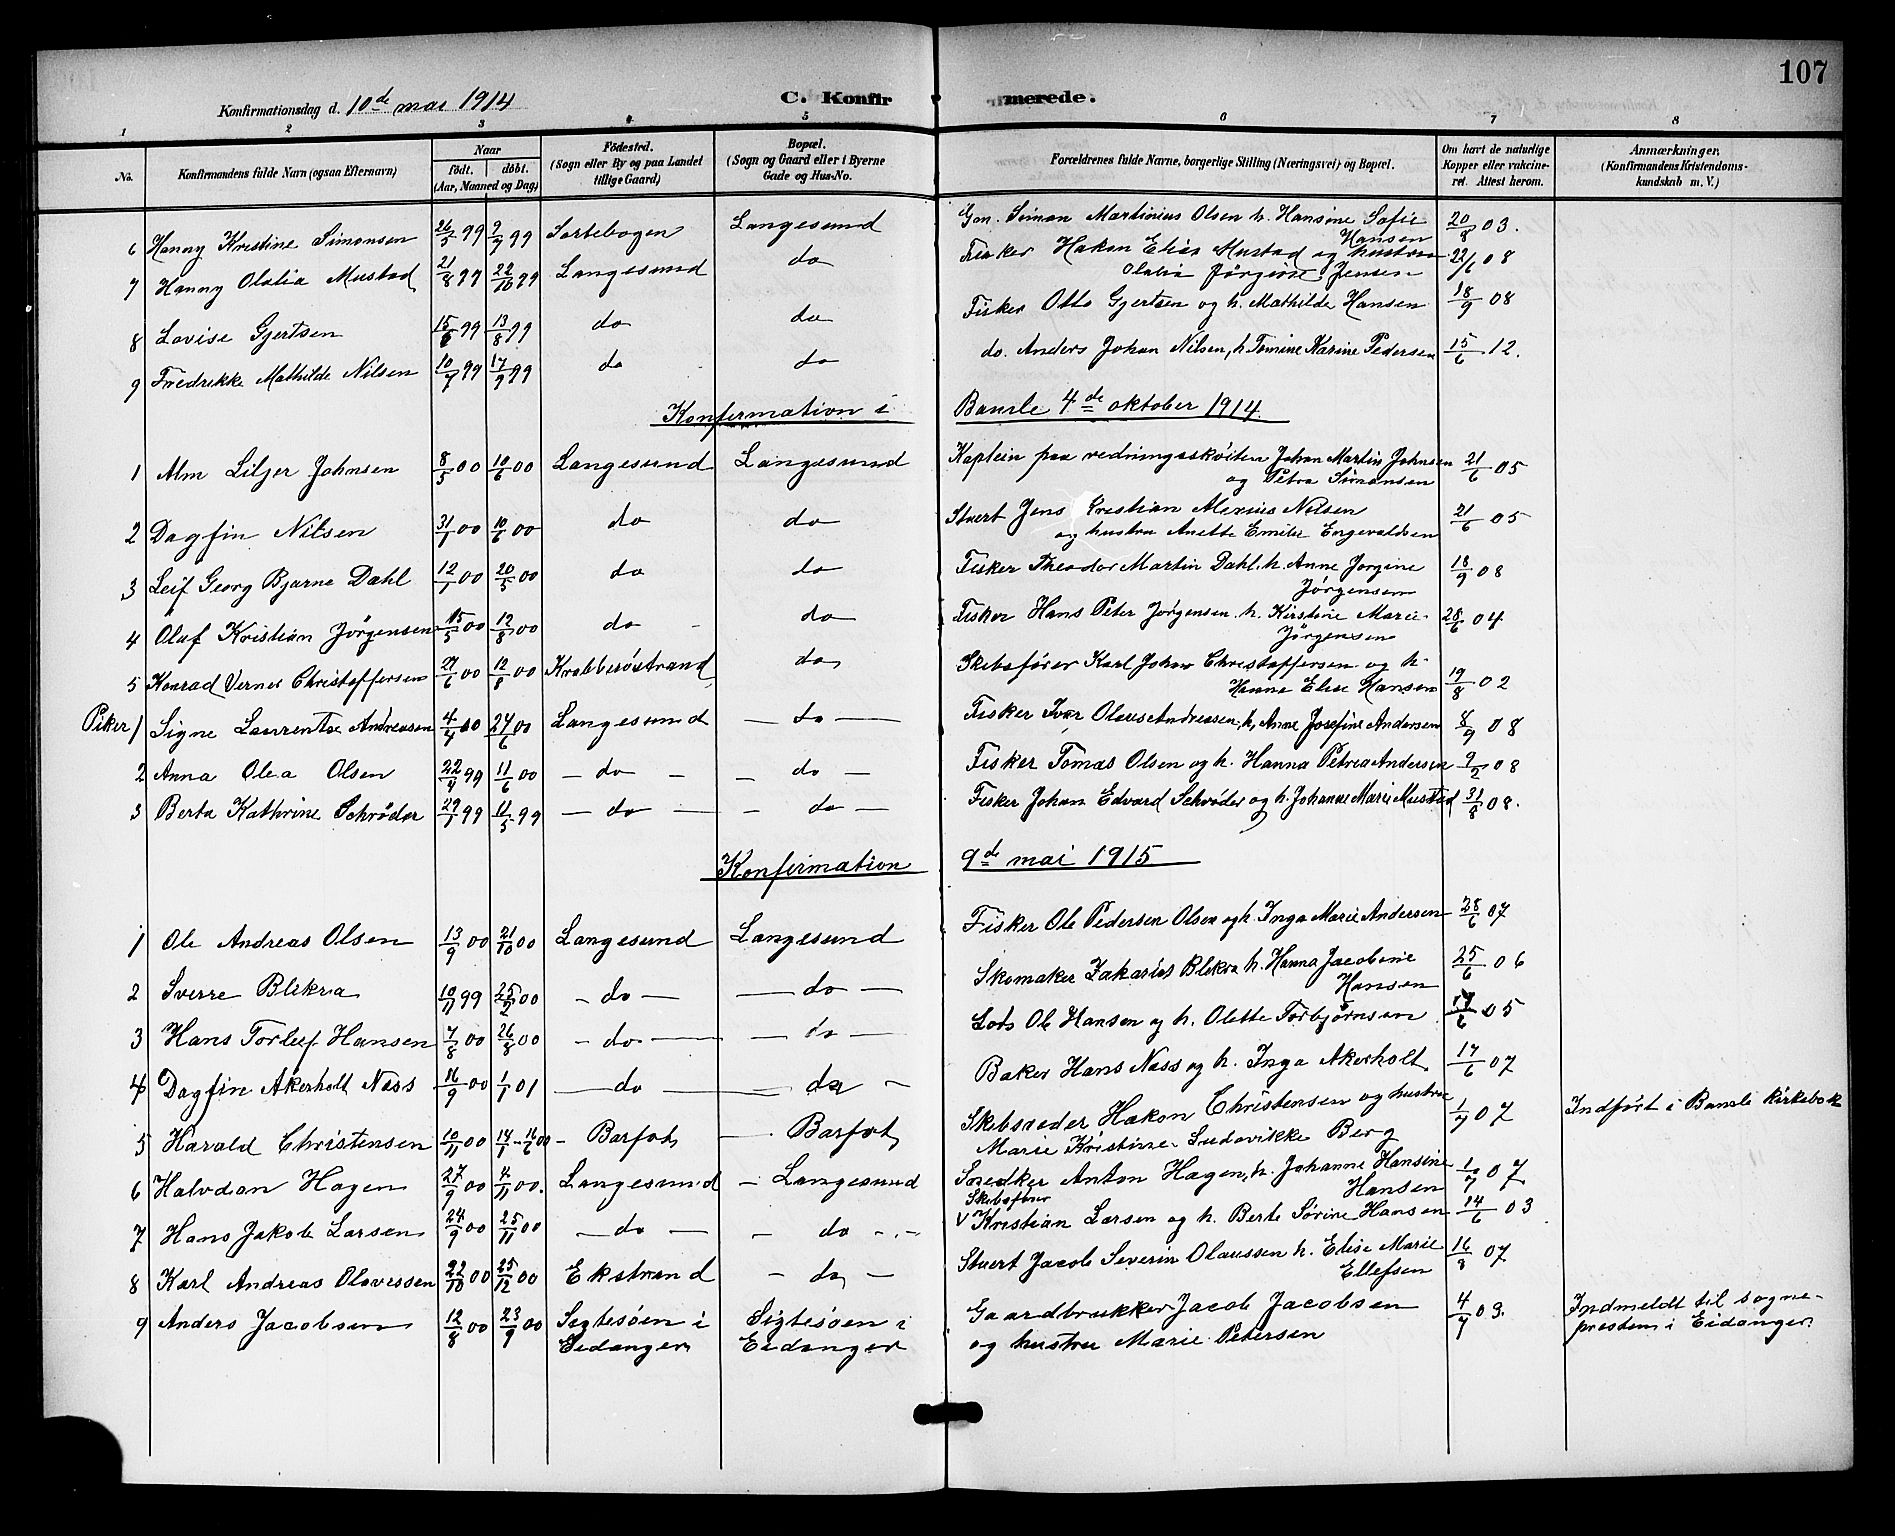 107
Konfirmationsdag d. 10de mai 1914 C. Konfirmerede.
1 2 3 4 5 6 7 8
No. Konfirmandens fulde Navn (ogsaa Efternavn) Naar født. døbt. (Aar, Maaned og Dag) Fødested. (Sogn eller By og paa Landet tillige Gaard) Bopæl. (Sogn og Gaard eller i Byerne Gade og Hus-No. Forældrenes fulde Navne, borgerlige Stilling (Næringsvei) og Bopæl. Om havt de naturlige Kopper eller vakcineret. Attest herom. Anmærkninger, (Konfirmandens Kristendomskundskab m. V.)
6 Hanny Kristine Simonsen 26/5 99 9/7 99 Sortebogen Langesund Simon Martinius Olsen h. Hansine Sofie Hansen 20/8 03.
7 Hanny Olalia Mustad 21/8 99 22/10 99 Langesund do Fisker Hakon Elias Mustad og hustru Olalia Jørgine Jensen 22/6 08
8 Lovise Gjertsen 15/6 99 13/8 99 do do Fisker Otto Gjertsen og h. Mathilde Hansen 18/9 08
9 Fredrikke Mathilde Nilsen 10/7 99 17/9 99 do do do. Anders Johan Nilsen, h. Tomine Karine Pedersen 15/6 12.
Konfirmation i Bamle 4de oktober 1914.
1 Alm Liljer Johnsen 8/5 00 10/6 00 Langesund Langesund Kaptein paa redningsskøiten Johan Martin Johnsen og Petra Simonsen 21/6 05
2 Dagfin Nilsen 31/1 00 10/6 00 do do Stuert Jens Kristian Marius Nilsen og hustru Anette Emilie Engevaldsen 21/6 05
3 Leif Georg Bjarne Dahl 12/1 00 20/5 00 do do Fisker Theodor Martin Dahl. h. Anne Jorgine Jørgensen 18/9 08
4 Oluf Kristian Jørgensen 15/5 00 12/8 00 do do Fisker Hans Peter Jørgensen. h. Kirstine Marie Jørgensen 28/6 04
5 Konrad Verner Christoffersen 27/6 00 12/8 00 Krabberøstrand do Skibsfører Karl Johan Christoffersen og h. Hanna Elise Hansen 19/8 02
Piker 1 Signe Laurentze Andreasen 4/4 00 24/6 00 Langesund — do — Fisker Ivar Olaus Andreasen, h. Anne Josefine Andersen 8/9 08
2 Anna Olea Olsen 22/4 99 11/6 00 — do — — do — Fisker Tomas Olsen og h. Hanna Petrea Andersen 9/2 08
3 Berta Kathrine Schrøder 29/1 99 11/5 99 — do — — do — Fisker Johan Edvard Schrøder og h. Johanne Marie Mustad 31/8 08.
Konfirmation 9de mai 1915
1 Ole Andreas Olsen 13/9 00 21/10 00 Langesund Langesund Fisker Ole Pedersen Olsen og h. Inga Marie Andersen 28/6 07
2 Sverre Blekra 10/11 99 25/2 00 — do — — do — Skomaker Zakarias Blekra h. Hanna Jacobine Hansen 25/6 06
3 Hans Torleif Hansen 7/8 00 26/8 00 — do — — do — Lods Ole Hansen og h. Olette Torbjørnsen 17/6 05
4 Dagfin Akerholt Næss 16/9 00 1/1 01 — do — — do — Baker Hans Næss og h. Inga Akerholt 17/6 07
5 Harald Christensen 10/11 00 14/1 - 16/6 00 — Barfot — Barfot Skibsreder Hakon Christensen og hustru Marie Kristine Ludovikke Berg 1/7 07 Indført i Bamle kirkebok
6 Halvdan Hagen 27/9 00 4/11 00. Langesund — Langesund Snedker Anton Hagen, h. Johanne Hansine Hansen 1/7 07
7 Hans Jakob Larsen 24/9 00 25/11 00 — do — — do — Skibsfører Kristian Larsen og h. Berte Sørine Hansen 14/6 03
8 Karl Andreas Olavessen 22/10 00 25/12 00 Ekstrand — do — Stuert Jacob Severin Olaussen h. Elise Marie Ellefsen 16/8 07
9 Anders Jacobsen 12/8 00 23/9 00 Sigtesøen i Eidanger Sigtesøen i Eidanger Gaardbruker Jacob Jacobsen og hustru Marie Petersen 4/7 03. Indmeldt til sognepresten i Eidanger.